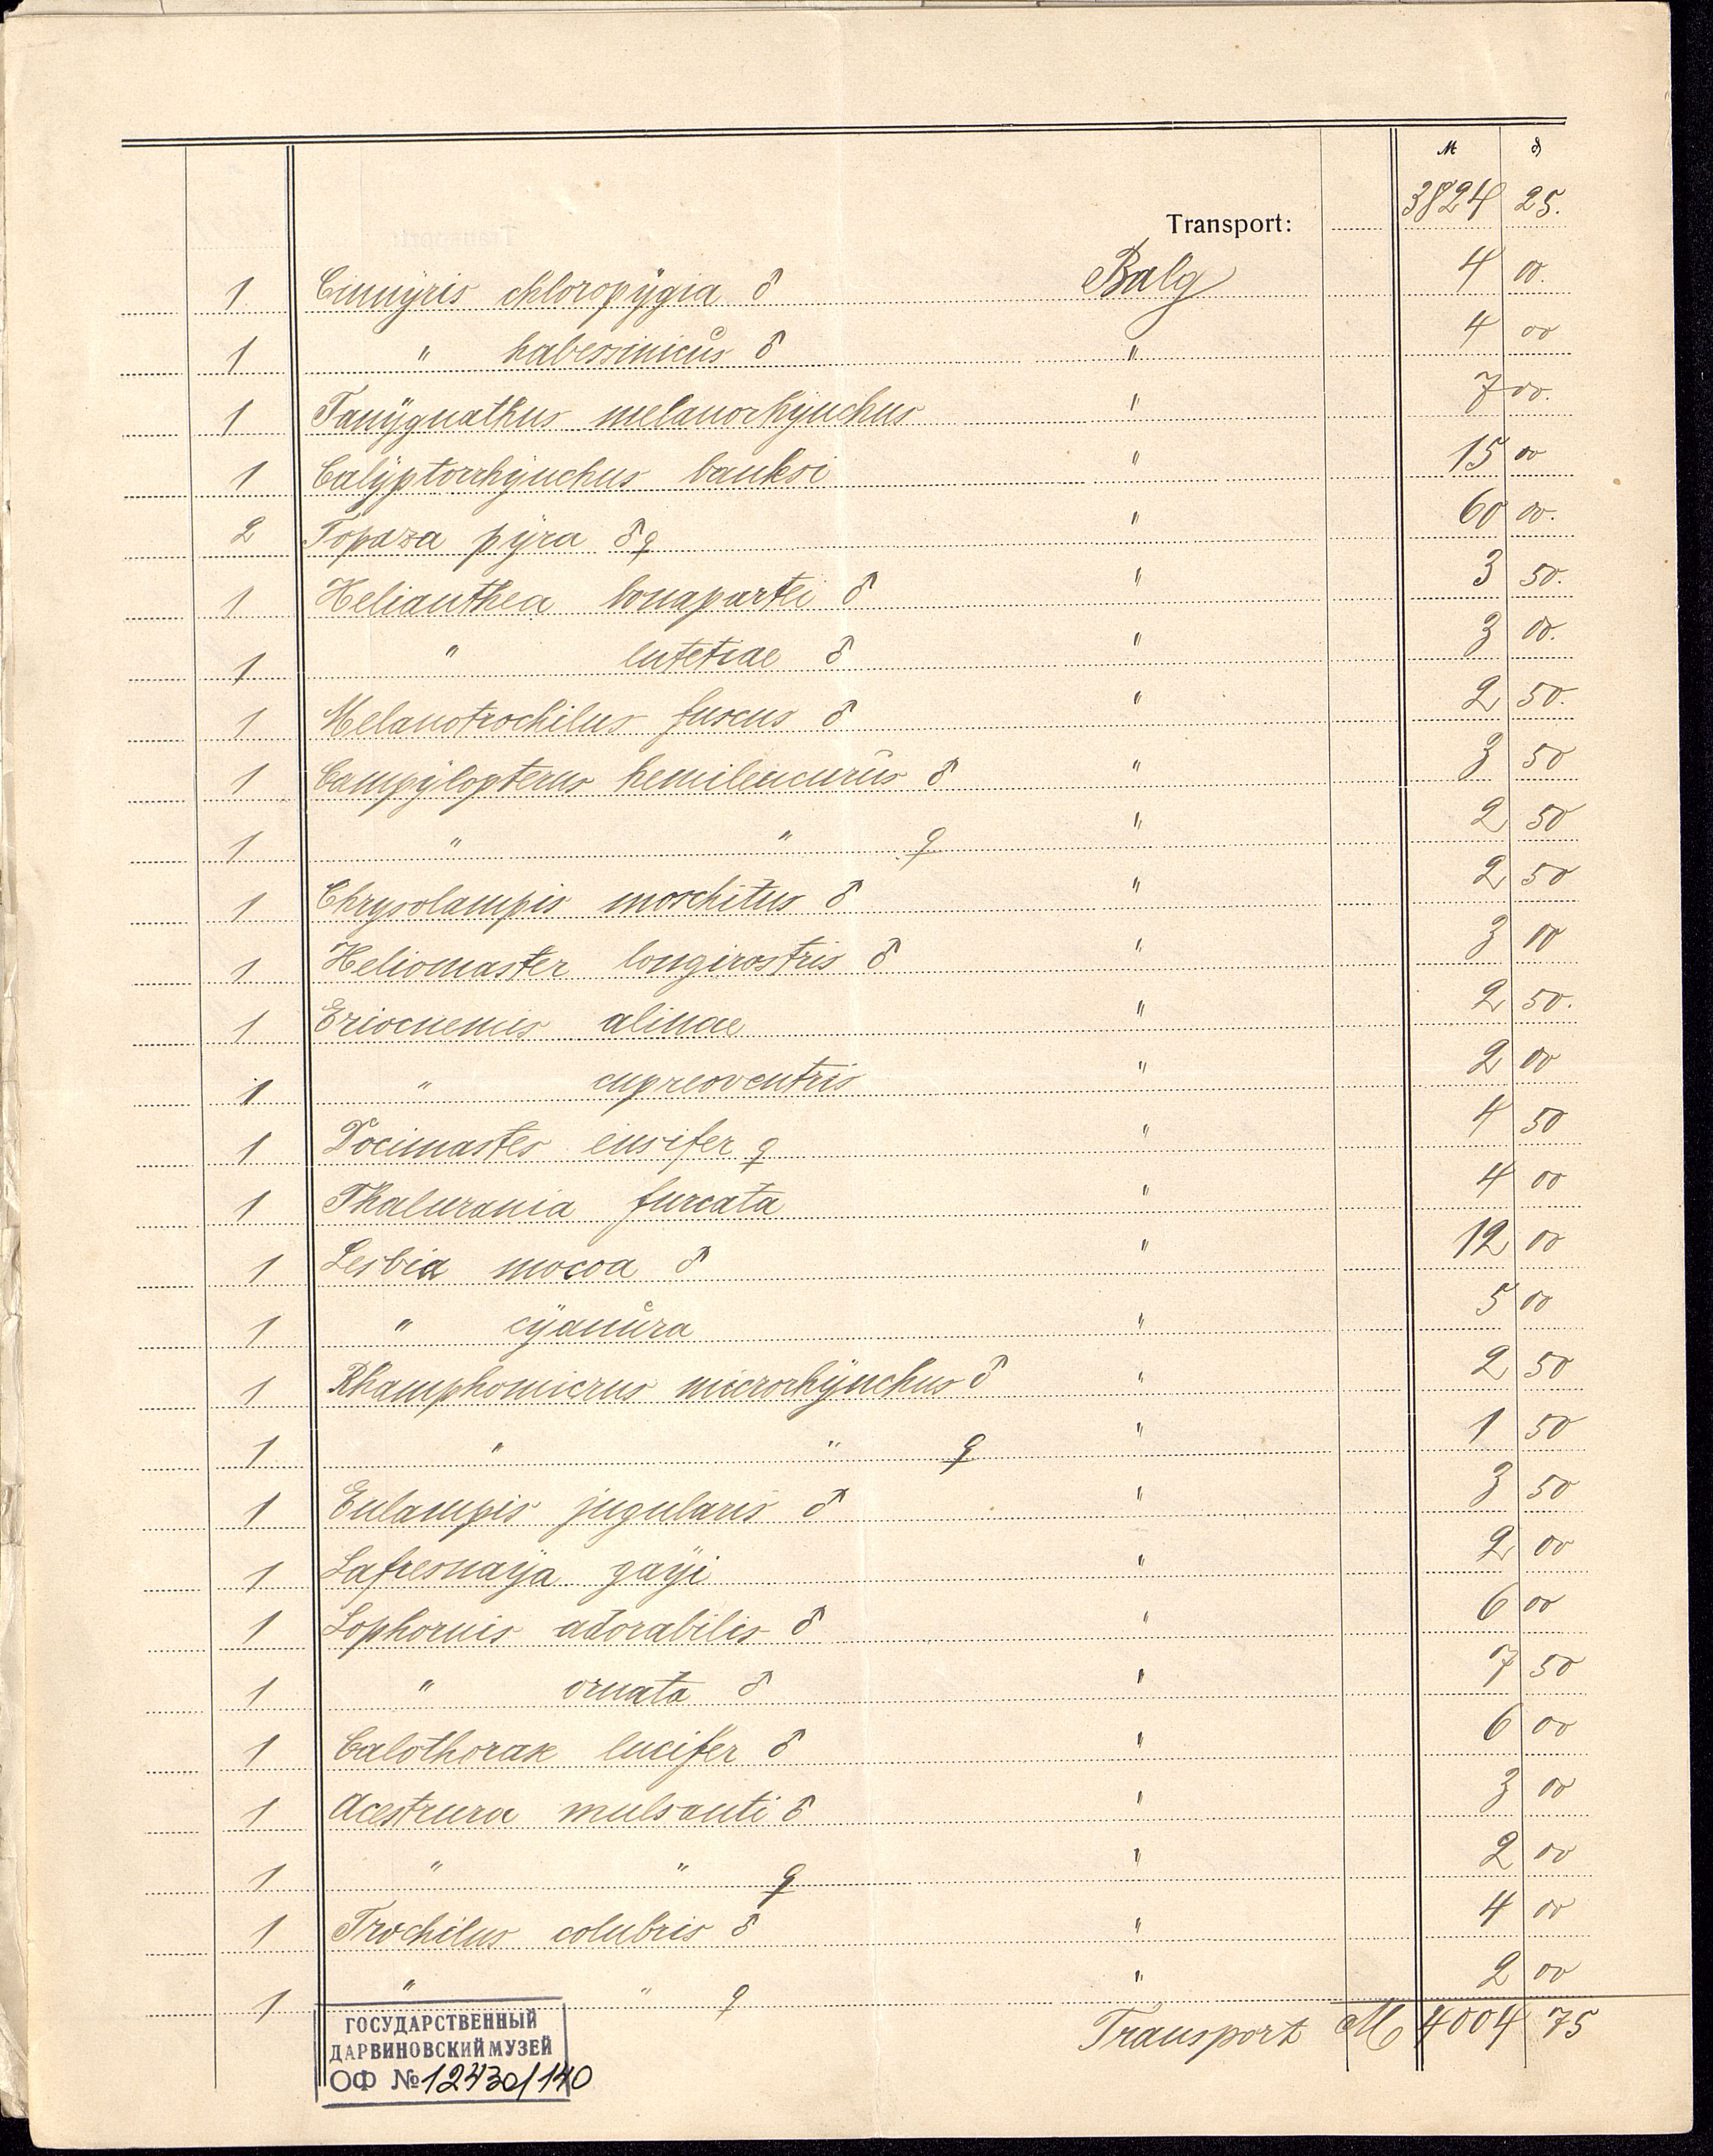 ℳ ₰
Transport: 3824 25.
1 Cinnÿris chloropÿgia ♂ Balg 4 00.
1 " habessinicus ♂ " 4 00
1 Tanÿgnathus melanorhÿnchus " 7 00.
1 Calÿptorrhÿnchus banksi " 15 00
2 Topaza pÿra ♂♀ " 60 00.
1 Helianthea bonapartei ♂ " 3 50.
1 " lutetiae ♂ " 3 00.
1 Melanotrochilus fuscus ♂ " 2 50.
1 Campÿlopterus hemileucurus ♂ " 3 50
1 " " ♀ " 2 50
1 Chrysolampis moschitus ♂ " 2 50
1 Heliomaster longirostris ♂ " 3 00
1 Eriocnemis alinae " 2 50.
1 " cupreoventris " 2 00
1 Docimastes ensifer ♀ " 4 50
1 Thalurania furcata " 4 00
1 Lesbia mocoa ♂ " 12 00
1 " cÿanura " 5 00
1 Rhamphomicrus microrhÿnchus ♂ " 2 50
1 " " ♀ " 1 50
1 Eulampis jugularis ♂ " 3 50
1 Lafresnaÿa gaÿi " 2 00
1 Lophornis adorabilis ♂ " 6 00
1 " ornata ♂ " 7 50
1 Calothorax lucifer ♂ " 6 00
1 Acestrura mulsanti ♂ " 3 00
1 " " ♀ " 2 00
1 Trochilus colubris ♂ " 4 00
1 " " ♀ " 2 00
Transport M 4004 75
ГОСУДАРСТВЕННЫЙ
ДАРВИНОВСКИЙ МУЗЕЙ
ОФ №12430/140